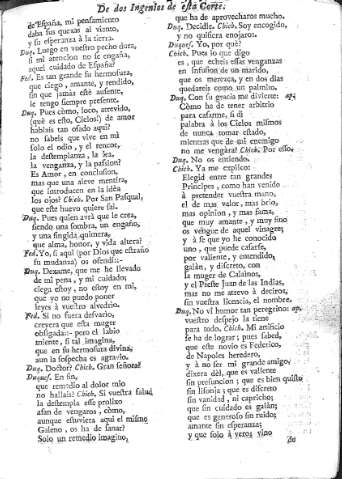 De dos Ingenios de esta Corte.
de España, mi pensamiento
daba sus quexas al viento,
y su esperanza à la tierra.
Duq. Luego en vuestro pecho dura,
si mi atencion no se engaña,
aquel cuidado de España?
Fed. Es tan grande su hermosura,
que ciego, amante, y rendido,
sin que jamàs estè ausente,
le tengo siempre presente.
Duq. Pues còmo, loco, atrevido,
(què es esto, Cielos!) de amor
hablais tan osado aqui?
no sabeis que vive en mi
solo el odio, y el rencor,
la destemplanza, la ira,
la venganza, y la passion?
Es Amor, en conclusion,
mas que una aleve mentira,
que introducen en la idèa
los ojos? Chich. Por San Pasqual,
que està huevo quiere sal.
Duq. Pues quien avrà que le crea,
siendo una sombra, un engaño,
y una fingida quimera,
que alma, honor, y vida altera?
Fed. Yo, si aqui (por Dios que estraño
su mudanza) os ofendi:-
Duq. Dexame, que me he llevado
de mi pena, y mi cuidado;
ciega estoy, no estoy en mi,
que yo no puedo poner
leyes à vuestro alvedrio.
Fed. Si no fuera desvario,
creyera que esta muger
obligada:- pero el labio
miente, si tal imagina,
que en su hermosura divina,
aun la sospecha es agravio.
Duq. Doctor? Chich. Gran señora?
Duques. En fin,
que remedio al dolor mio
no hallais? Chich. Si vuestra salud
la destempla esse prolixo
afan de vengaros, còmo,
aunque estuviera aqui el mismo
Galeno, os ha de sanar?
Solo un remedio imagino,
que ha de aprovecharos mucho.
Duq. Decidle. Chich. Soy encogido,
y no quisiera enojaros.
Duques. Yo, por què?
Chich. Pues lo que digo
es, que echeis essas venganzas
en infusion de un marido,
que os merezca, y en dos dias
quedareis como un palmito.
Duq. Con su gracia me divierte: ap.
Còmo ha de tener arbitrio
para casarme, si di
palabra à los Cielos mismos
de nunca tomar estado,
mientras que de mi enemigo
no me vengàra? Chich. Por esso.
Duq. No os entiendo.
Chich. Ya me explico:
Elegid entre tan grandes
Principes, como han venido
à pretender vuestra mano,
el de mas valor, mas brio,
mas opinion, y mas fama,
que muy amante, y muy fino
os vengue de aquel vinagre;
y à fe que yo he conocido
uno, que puede casarse,
por valiente, y entendido,
galàn, y discreto, con
la muger de Calainos,
y el Preste Juan de las Indias,
mas no me atrevo à deciros,
sin vuestra licencia, el nombre.
Duq. No vì humor tan peregrino: ap.
vuestro despejo la tiene
para todo. Chich. Mi artificio
se ha de lograr; pues sabed,
que este novio es Federico,
de Napoles heredero,
y à no ser mi grande amigo,
dixera dèl, que es valiente
sin presuncion; que es bien quisto
sin lisonja; que es discreto
sin vanidad, ni capricho;
que sin cuidado es galàn;
que es generoso sin ruido;
amante sin esperanzas;
y que solo à veros vino